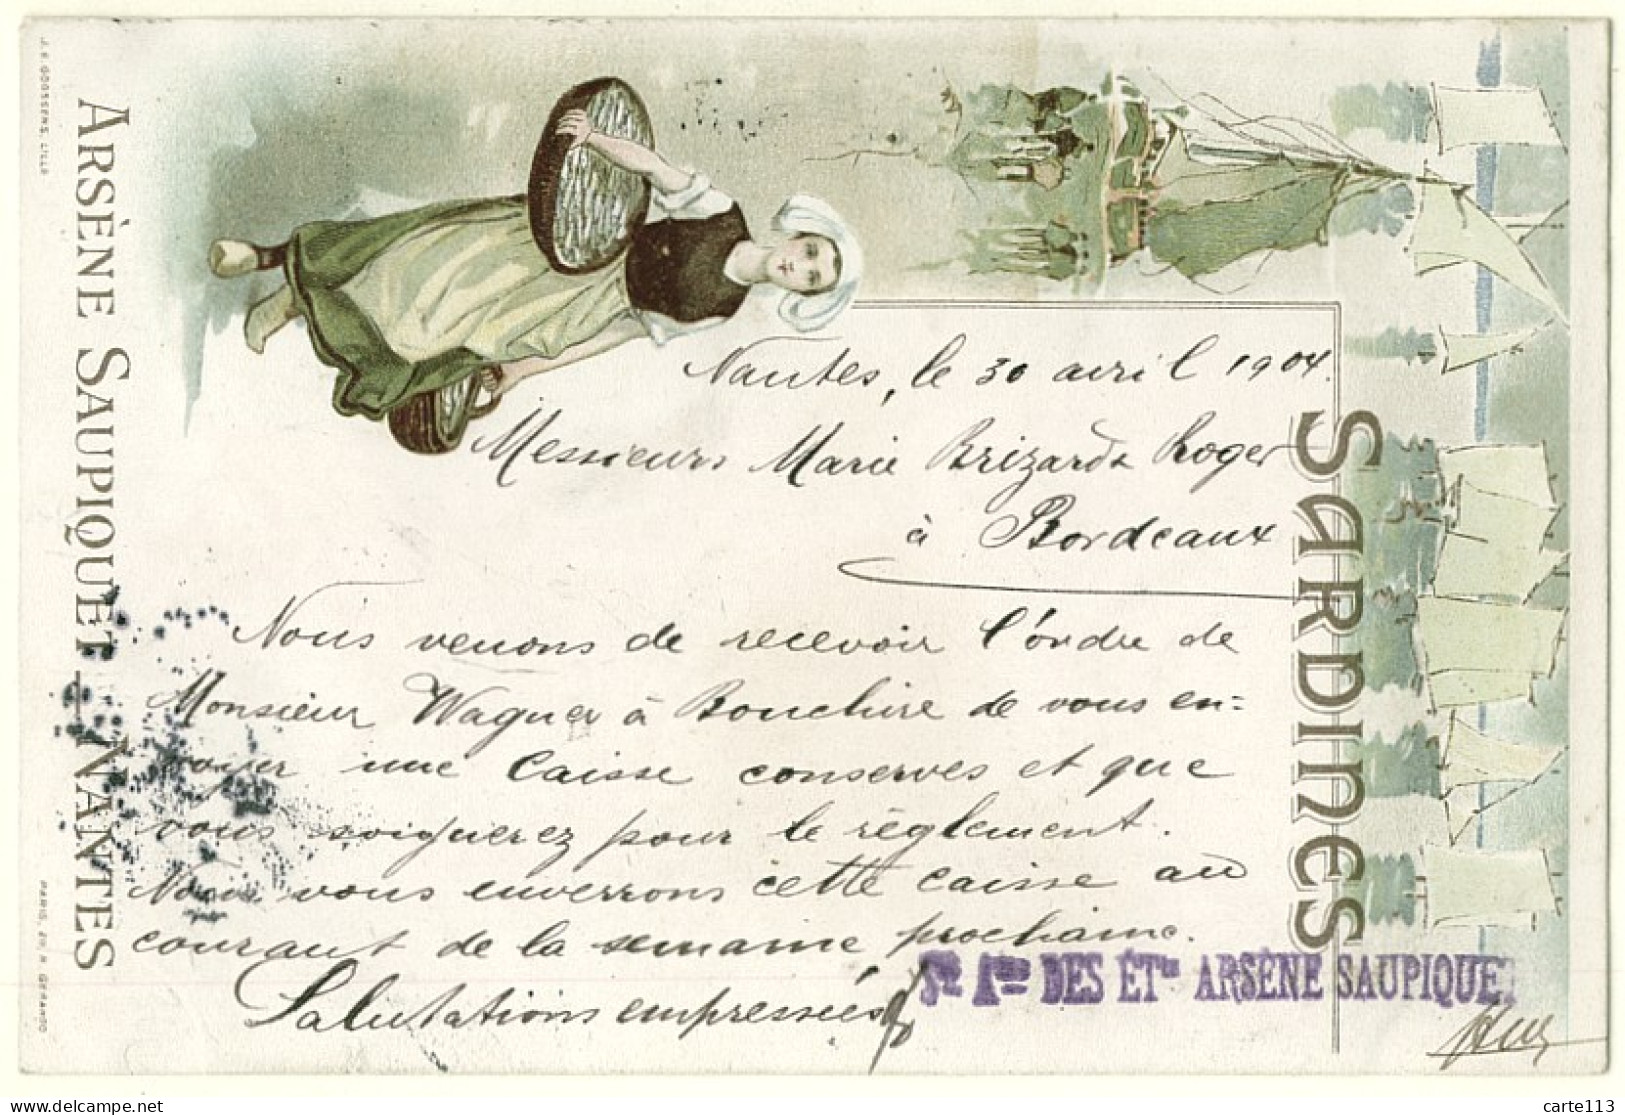 J. E. GOOSSENS, LILLE
PARIS, 20, R. GÉRANDO
ARSÈNE SAUPIQUET _ NANTES
SARDINES
Nantes, le 30 avril 1904.
Messieurs Marie Brizard & Roger
à Bordeaux
Nous venons de recevoir l'ordre de
Monsieur Wagner à Bouchire de vous en=
voyer une caisse conserves et que
vous soignerez pour le règlement.
Nous vous enverrons cette caisse au
courant de la semaine prochaine.
Salutations empressées
Sté Ame DES ÉTts ARSÈNE SAUPIQUET
carte113